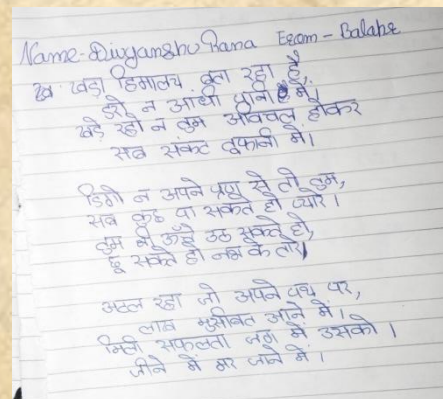 Name-Divyanshu Rana From - Balahr
ख खड़ा हिमालय बता रहा है,
डरो न आंधी पानी में।
खड़े रहो न तुम अविचल होकर
सब संकट तूफानी में।
डिगो न अपने प्रण से तो तुम,
सब कुछ पा सकते हो प्यारे।
तुम भी ऊँचे उठ सकते हो,
छू सकते हो नभ के तारे।
अटल रहा जो अपने पथ पर,
लाख मुसीबत आने में।
मिली सफलता जग में उसको।
जीने में मर जाने में।